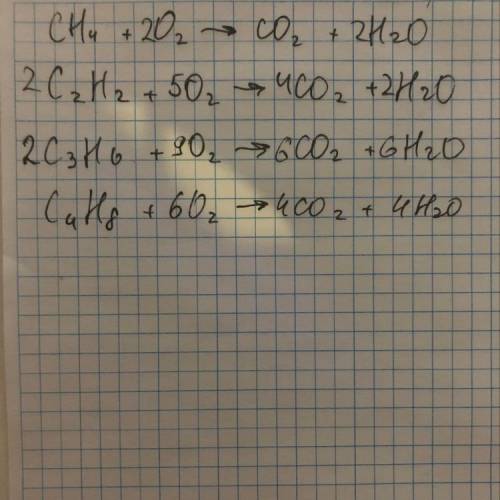 CH₄ + 2O₂ → CO₂ + 2H₂O
2C₂H₂ + 5O₂ → 4CO₂ + 2H₂O
2C₃H₆ + 9O₂ → 6CO₂ + 6H₂O
C₄H₈ + 6O₂ → 4CO₂ + 4H₂O